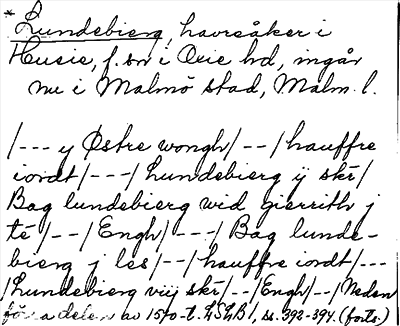 * Lundebierg, havreåker i
Husie, f. sn i Oxie hd, ingår
nu i Malmö stad, Malm. l.
/--- y Østre wongh/--/hauffre
iordt/---/Lundebierg ij skr/
Bag lundebierg wid gierrith j
te/--/Engh/---/Bag lunde-
bierg j les/--/hauffre iordt/---
/Lundebierg viij skr/--/Engh/--/Nedan
förra delen av 1570-t. LSLB1, ss. 392-394. (forts.)